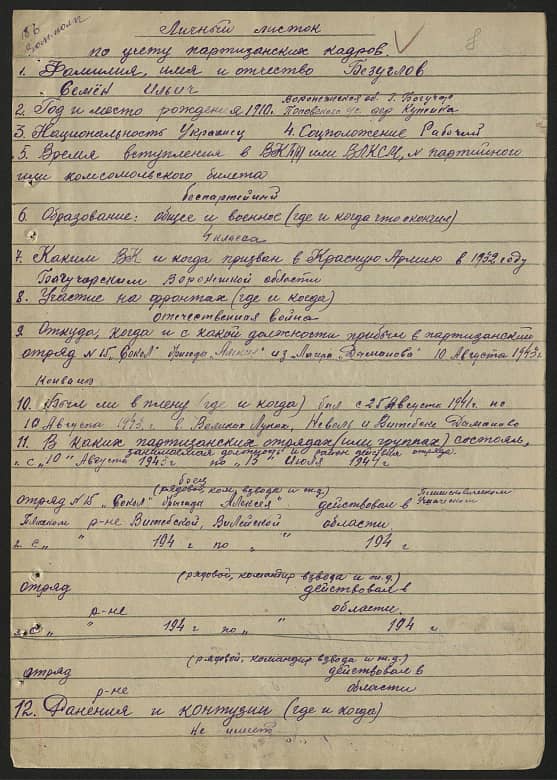 Личный листок
по учету партизанских кадров.
1. Фамилия, имя и отчество Безуглов
Семён Ильич
2. Год и место рождения 1910. Воронежская об. г. Богучар
Поповского с/с. дер
3. Национальность Украинец 4. Соцположение Рабочий
5. Время вступления в ВКП(б) или ВЛКСМ, N партийного
или комсомольского билета
беспартейный
6. Образование: общее и военное (где и когда что окончил)
4 класса
7. Каким ВК и когда призван в Красную Армию в 1932 году
Богучарским Воронежской области
8. Участие на фронтах (где и когда)
отечественная война
9. Откуда, когда и с какой должности прибыл в партизанский
отряд N 15 „Сокол" бригада „Алексея" из Лагеря „Даманова" 10 Августа 1943 г.
10. Был ли в плену (где и когда) был с 25 Августа 1941 г. по
10 Августа 1943 г. в Великих Луках, Невель и Витебск Даманово
11. В каких партизанских отрядах (или группах) состоял,
занимаемая должность и район действия отряда.
1. с „10" Августа 1943 г по „15" Июля 1944 г
боец
(рядовой, ком. взвода и т.д.)
отряд N 15 „Сокол" бригада Алексея" действовал в
р-не Витебской, Вилейской области.
2. с „ " 194 г по „ " 194 г
(рядовой, командир взвода и т.д.)
отряд действовал в
р-не области.
3. с „ " 194 г по „ " 194 г
(рядовой, командир взвода и т.д.)
отряд действовал в
р-не области
12. Ранения и контузии (где и когда)
Не имеет